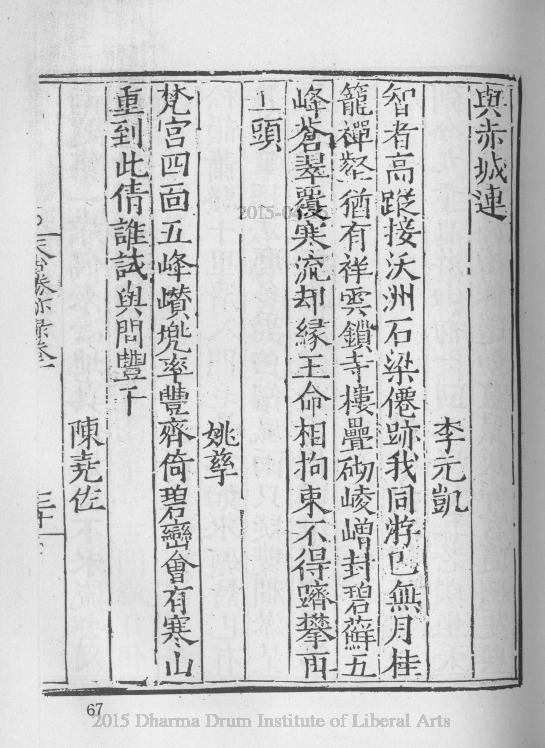 與赤城連
李元凱
智者高蹤接沃洲石梁僊跡我同游已無月桂
籠禪塋猶有祥雲鎖寺樓疊砌崚嶒封碧蘚五
峰蒼翠覆寒流却緣王命相拘束不得躋攀再
上頭
姚孳
梵宫四面五峰巑兠率豐齊倚碧巒會有寒山
重到此倩誰試與問豐干
陳堯佐
天台勝亦录卷一
67
2015 Dharma Drum Institute of Liberal Arts